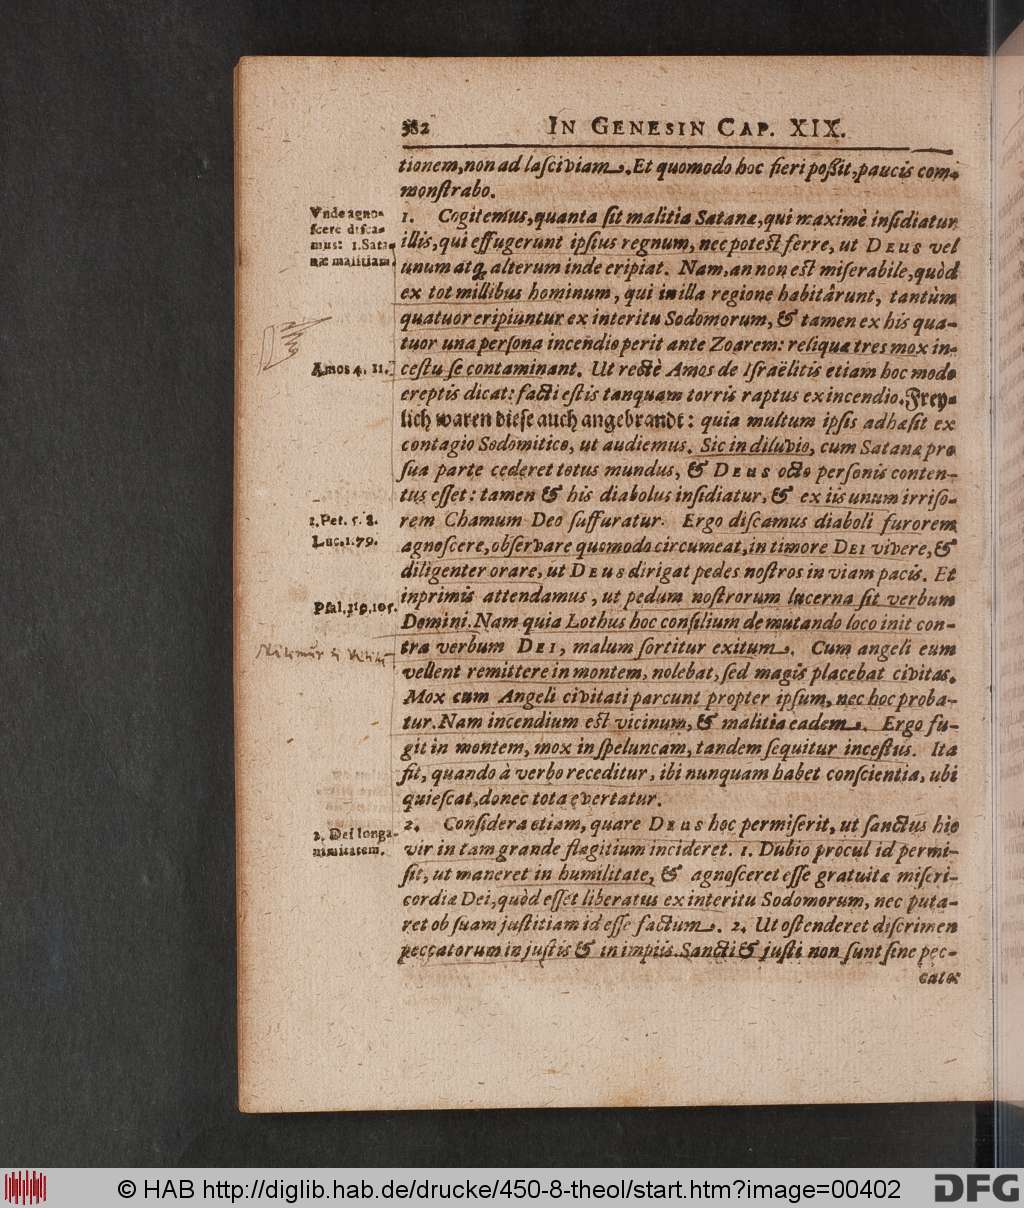 382 IN GENESIN CAP. XIX.
tionem, non ad lasciviam. Et quomodo hoc fieri poßit, paucis com-
monstrabo.
Vnde agno-
scere disca-
mus: 1. Sata-
næ malitiam.
1. Cogitemus, quanta sit malitia Satanæ, qui maximè insidiatur
illis, qui effugerunt ipsius regnum, nec potest ferre, ut DEUS vel
unum atq; alterum inde eripiat. Nam, an non est miserabile, quòd
ex tot millibus hominum, qui in illa regione habitârunt, tantùm
quatuor eripiuntur ex interitu Sodomorum, & tamen ex his qua-
tuor una persona incendio perit ante Zoarem: reliquæ tres mox in-
Amos 4. 11.
cestu se contaminant. Ut rectè Amos de Israëlitis etiam hoc modo
ereptis dicat: facti estis tanquam torris raptus ex incendio. Frey-
lich waren diese auch angebrandt: quia multum ipsis adhæsit ex
contagio Sodomitico, ut audiemus. Sic in diluvio, cum Satanæ pro
sua parte cederet totus mundus, & DEUS octo personis conten-
tus esset: tamen & his diabolus insidiatur, & ex iis unum irriso-
1. Pet. 5. 8.
rem Chamum Deo suffuratur. Ergo discamus diaboli furorem
Luc. 1. 79.
agnoscere, observare quomodo circumeat, in timore DEI vivere, &
diligenter orare, ut DEUS dirigat pedes nostros in viam pacis. Et
Psal. 119. 105.
inprimis attendamus, ut pedum nostrorum lucerna sit verbum
Domini. Nam quia Lothus hoc consilium de mutando loco init con-
tra verbum DEI, malum sortitur exitum. Cum angeli eum
vellent remittere in montem, nolebat, sed magis placebat civitas.
Mox cum Angeli civitati parcunt propter ipsum, nec hoc proba-
tur. Nam incendium est vicinum, & malitia eadem. Ergo fu-
git in montem, mox in speluncam, tandem sequitur incestus. Ita
fit, quando à verbo receditur, ibi nunquam habet conscientia, ubi
quiescat, donec tota evertatur.
2. Dei longa-
nimitatem.
2. Considera etiam, quare DEUS hoc permiserit, ut sanctus hic
vir in tam grande flagitium incideret. 1. Dubio procul id permi-
sit, ut maneret in humilitate, & agnosceret esse gratuitæ miseri-
cordiæ Dei, quòd esset liberatus ex interitu Sodomorum, nec puta-
ret ob suam justitiam id esse factum. 2. Ut ostenderet discrimen
peccatorum in justis & in impiis. Sancti & justi non sunt sine pec-
cato:
© HAB http://diglib.hab.de/drucke/450-8-theol/start.htm?image=00402
DFG